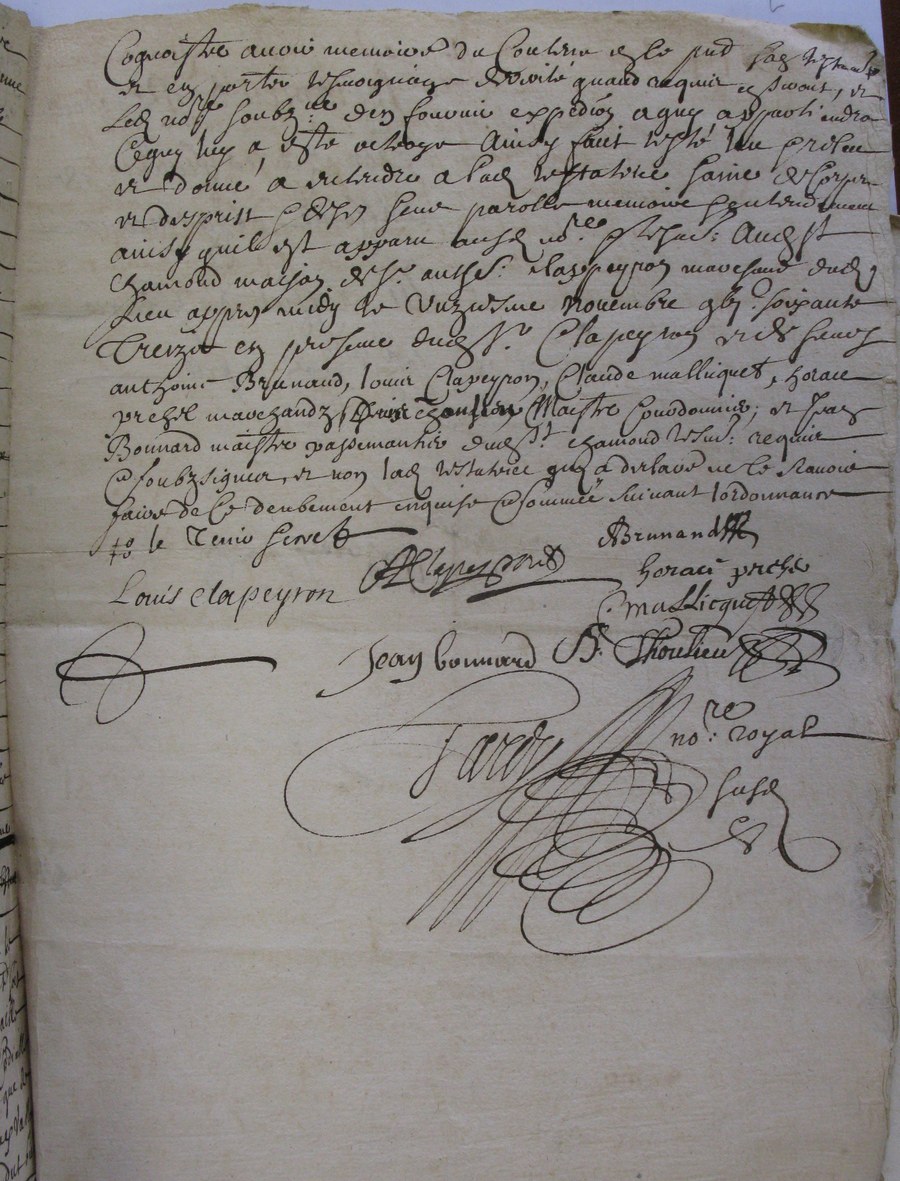 Cognoistre avoir memoire du Contenu et le pnt sad testament
et en porter tesmoignage de verité quand requis en seront, et
Led nore soubzne den fournir expedion a quy appartiendra
Ce quy luy a esté octroyé Ainsy faict testé leu
et donné a entendre a lad testatrice saine de Corps
et desprist ses sens parolle memoire entendement
ainsy quil est apparu ausd nore Audt St
Chamond maison de Sr anthe: Clappeyron marchand dud
Lieu appres midy le Unziesme Novembre gbi soixante
Treize en presence dudt Sr Clapeyron et de sieurs
anthoine Brunand, louis Clapeyron, Claude mallicquet, horace
marchandz Maistre Courdonnier; et Jean
Bonnard maistre passemantier dud St chamond tesm: requis
soubzsignes, et non lad testatrice quy a declaré ne le scavoir
faire de ce deubement enquise sommée suivant lordonnance
le
ABrunand
Clapeyron
horace
Louis Clapeyron
C. mallicquet
Jean bonnard
nore: royal
susd